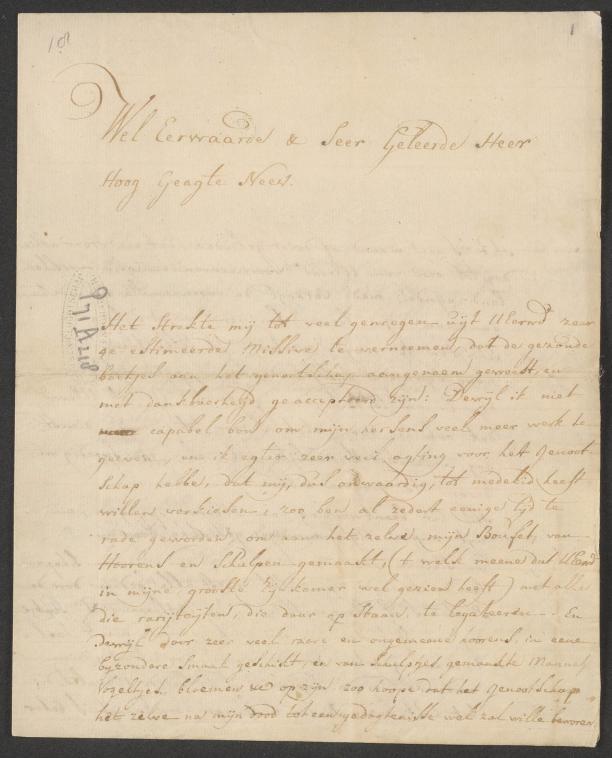 108
1
Wel Eerwaarde & Seer Geleerde Heer
Hoog Geagte Neev.
Het Strekte mij tot veel genoegen uijt UEerwd zeer
ge estimeerde Missive te verneemen, dat de gezonde
boekjes aan het genootschap aangenaem geweest, en
met dankbaerheijd geaccepteerd zijn: Dewijl ik niet
capabel ben, om mijn hersens veel meer werk te
geeven, en ik egter zeer veel agting voor het Genoot
schap hebbe, dat mij, dus onwaardig, tot medelid heeft
willen verkiesen, zoo ben al zedert eenige tijd te
rade geworden, om aan het zelve mijn Boufet, van
Hoorens en Schulpen gemaakt, (t welk meene dat UEerwd
in mijne grootste zijkamer wel gezien heeft) met alle
die rarijtijten, die daar op staan, te legateeren. En
Dewijl daar zeer veel rare en ongemeene hoorens, in eene
bijzondere Smaak geschikt, en van schulpjes gemaakte Mannetjes
Vogeltjes, bloemen &c op zijn, zoo hoope dat het Genootschap
het zelve na mijn dood tot een gedagtenisse wel zal wille bewaren